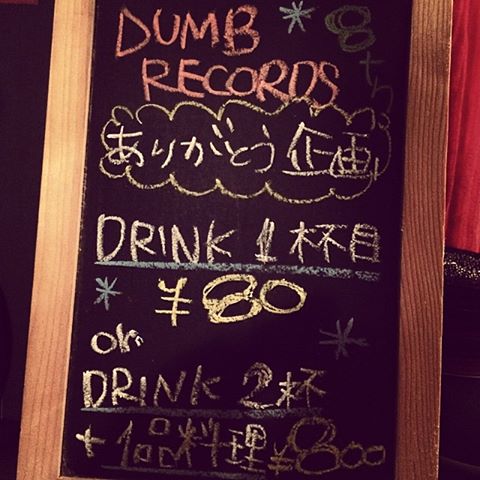 DUMB 8th
RECORDS
ありがとう企画
DRINK 1杯目
¥80
or
DRINK 2杯
+1品料理¥800